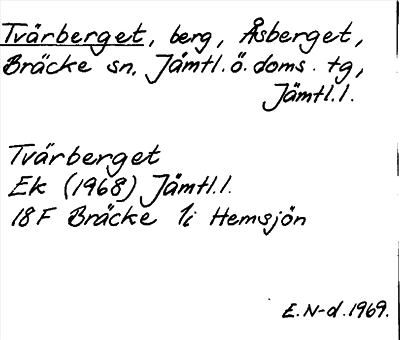 Tvärberget, berg, Åsberget,
Bräcke sn, Jämtl. ö. doms. tg,
Jämtl. l.
Tvärberget
Ek (1968) Jämtl. l.
18F Bräcke 1i Hemsjön
E. N-d. 1969.